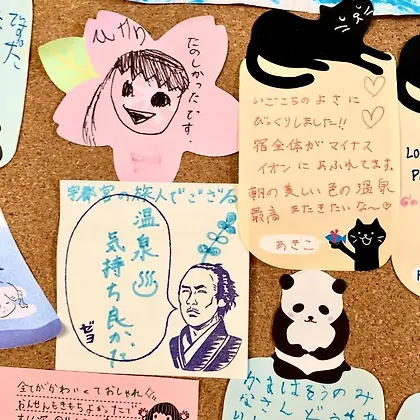 ひかり
たのしかったです。
いごこちのよさに
びっくりしました!!
宿全体がマイナス
イオンにあふれてます。
朝の美しい色の温泉
最高 またきたいな〜♡
あきこ
の旅人でござる
温泉♨
気持ち良かった
ゼヨ
全てがかわいくておしゃれ
おんせんもきもちよかったで